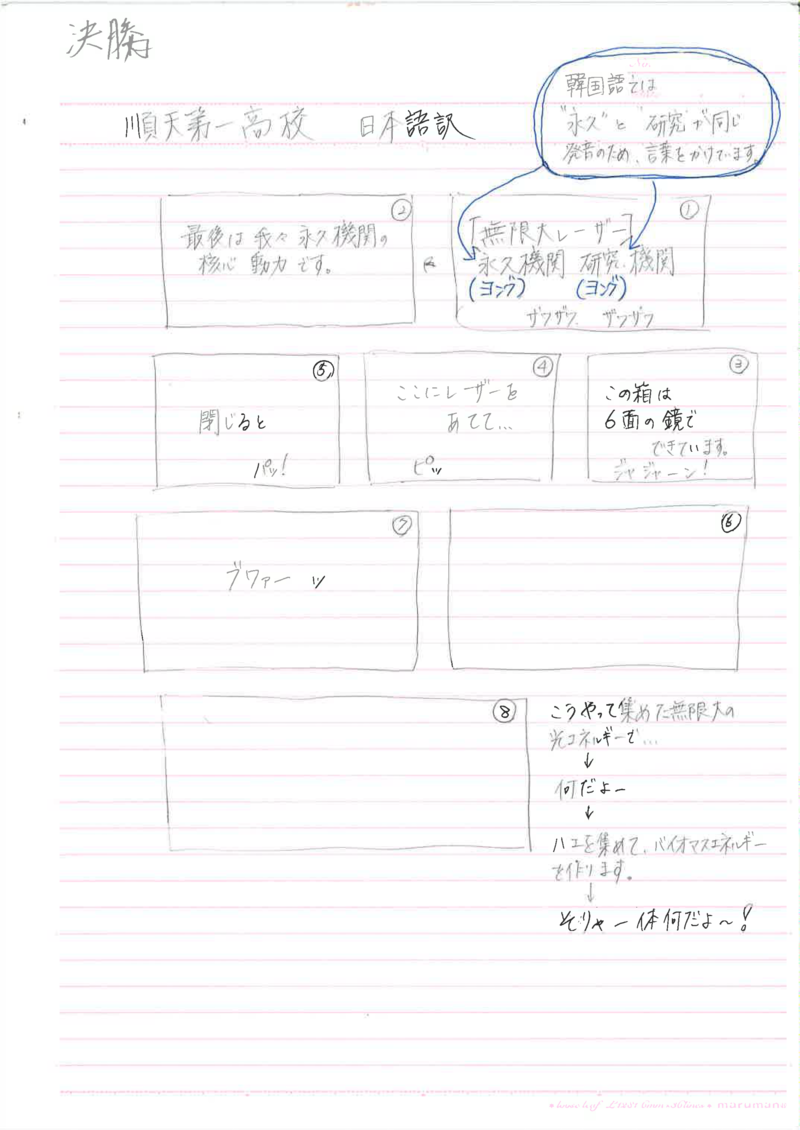 決勝
順天第一高校 日本語訳
韓国語では
"永久"と"研究"が同じ
発音のため、言葉をかけています。
①
「無限大レーザー」
永久機関 研究機関
(ヨング) (ヨング)
ザワザワ ザワザワ
②
最後は我々永久機関の
核心動力です。
③
この箱は
6面の鏡で
できています。
ジャジャーン!
④
ここにレーザーを
あてて...
ピッ
⑤
閉じると
パッ!
⑥
⑦
ブワァーッ
⑧
こうやって集めた無限大の
光エネルギーで...
↓
何だよー
↓
ハエを集めて、バイオマスエネルギー
を作ります。
↓
そりゃ一体何だよ〜!
marumano